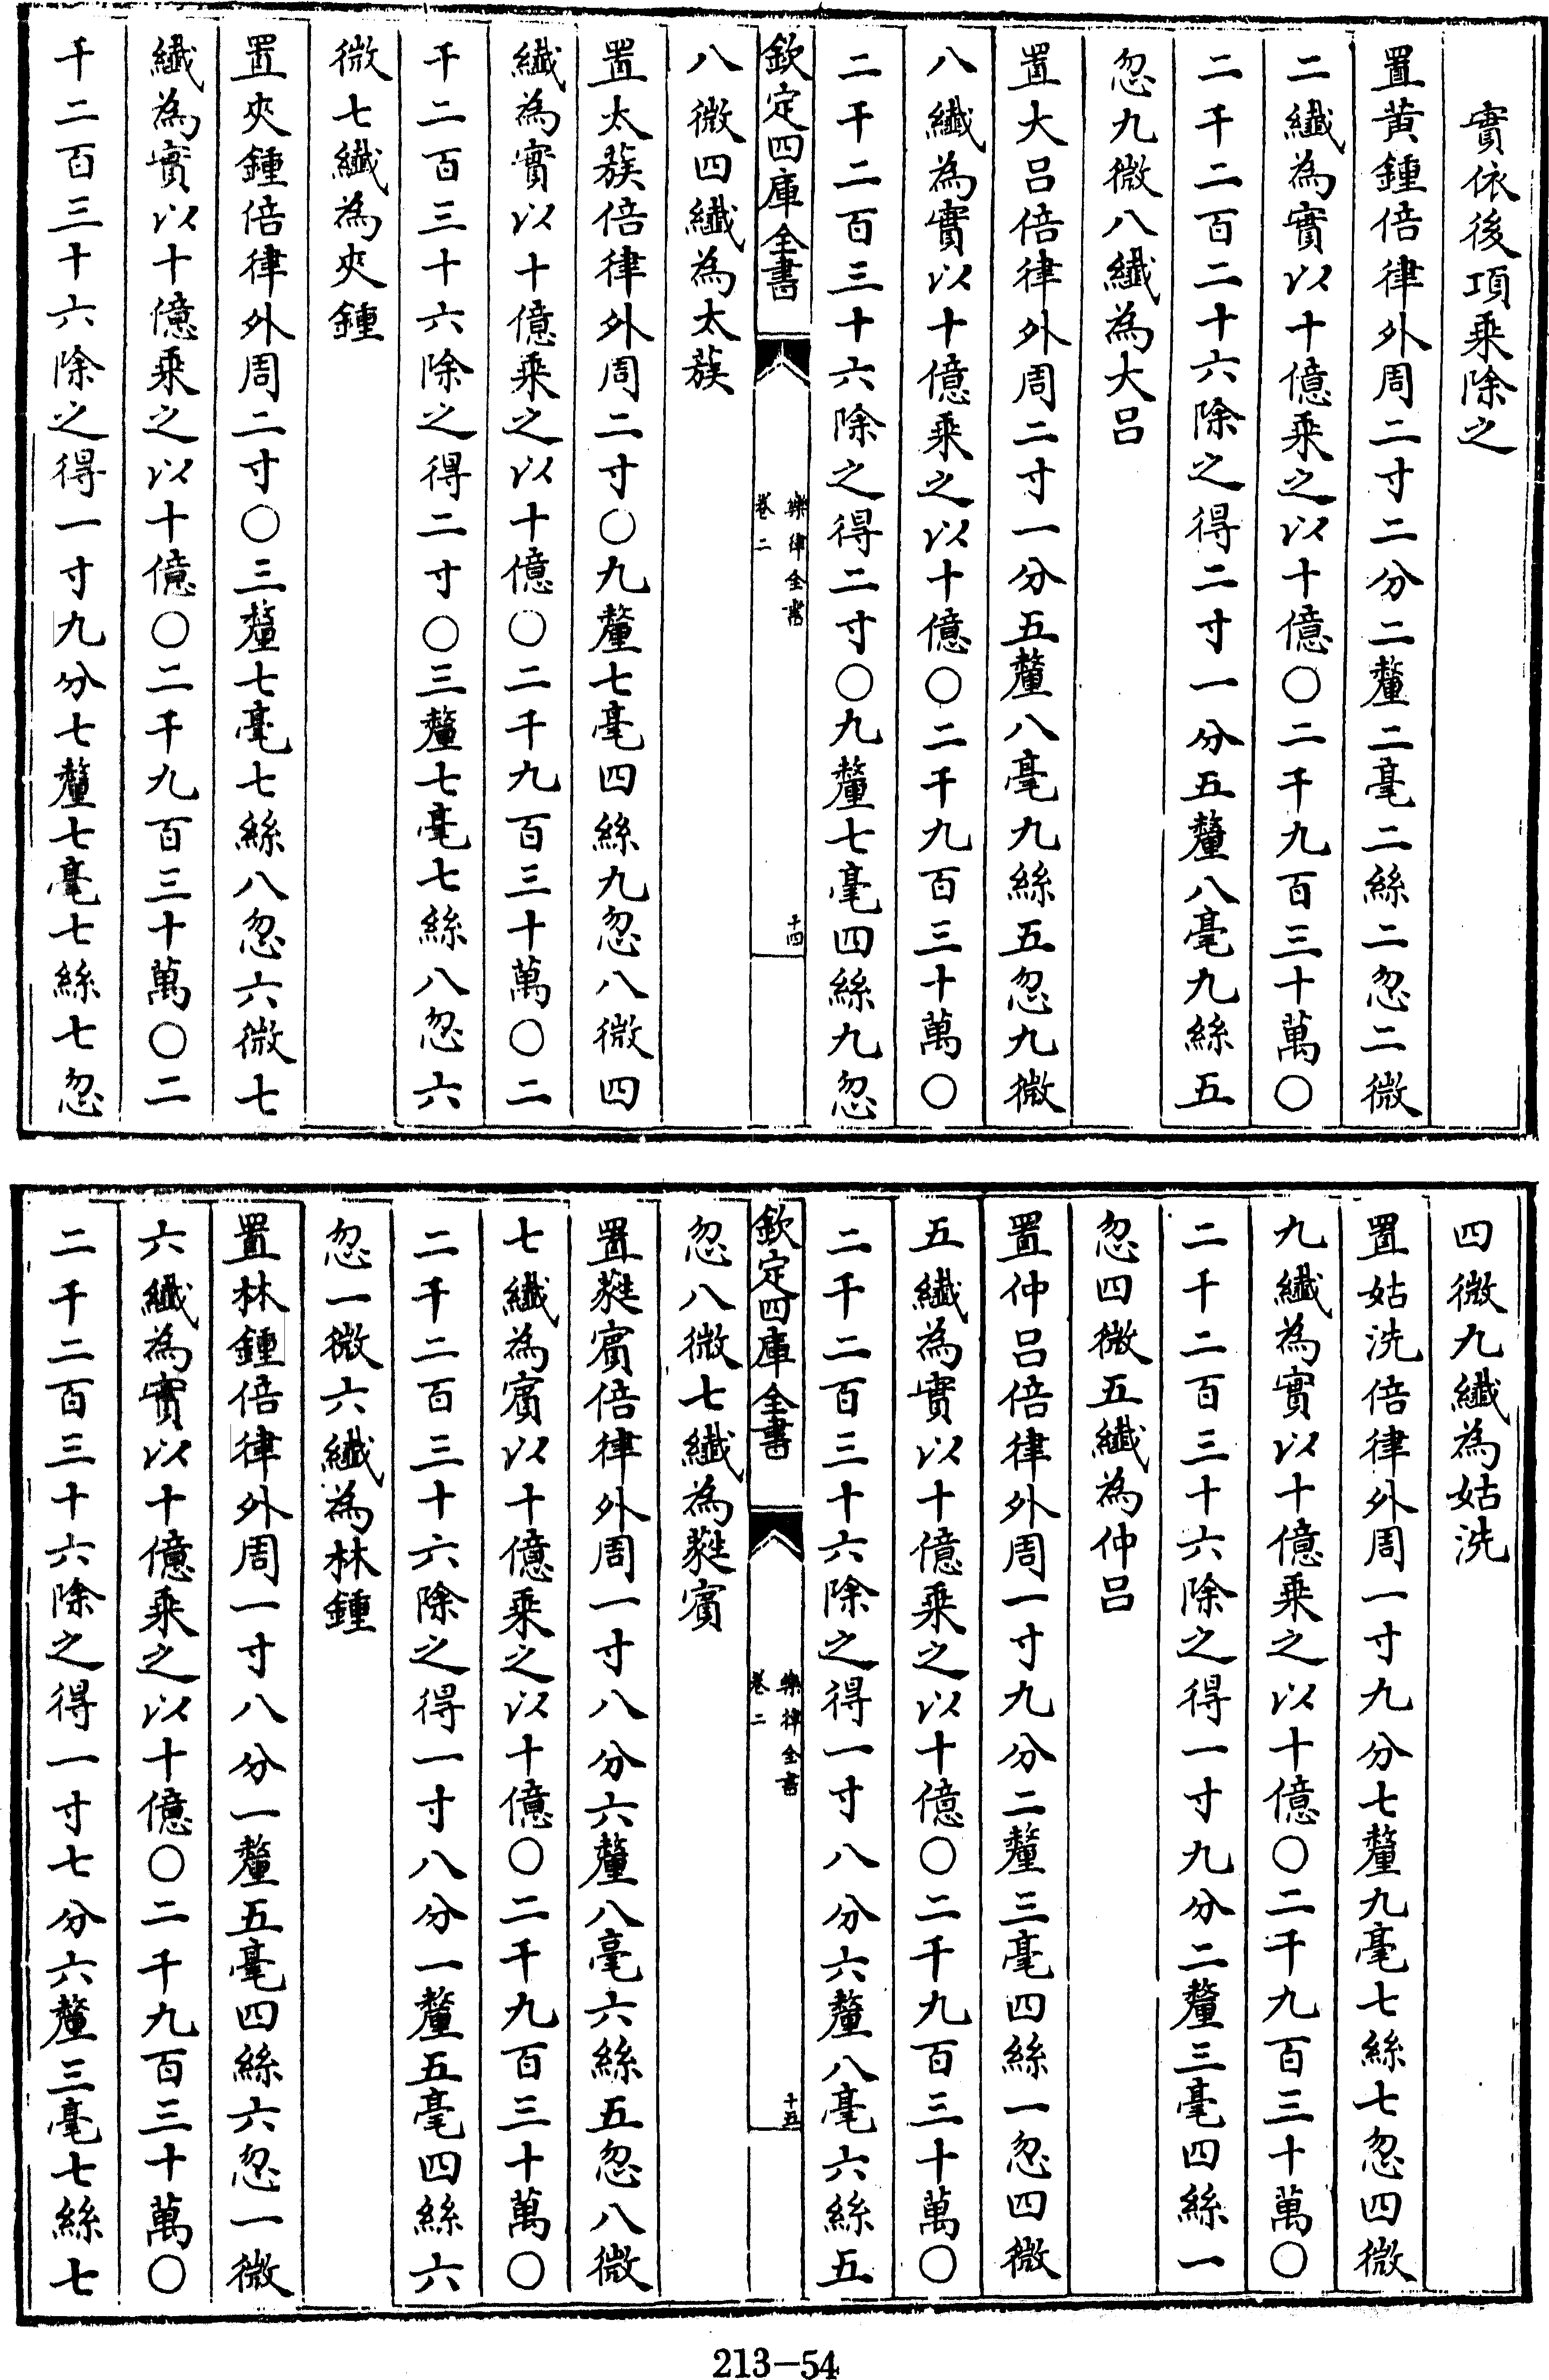 實依後項乘除之
置黄鍾倍律外周二寸二分二釐二毫二絲二忽二微
二纖為實以十億乘之以十億〇二千九百三十萬〇
二千二百二十六除之得二寸一分五釐八毫九絲五
忽九微八纖為大吕
置大吕倍律外周二寸一分五釐八毫九絲五忽九微
八纖為實以十億乘之以十億〇二千九百三十萬〇
二千二百三十六除之得二寸〇九釐七毫四絲九忽
欽定四庫全書
樂律全書
卷二
十四
八微四纖為太蔟
置太蔟倍律外周二寸〇九釐七毫四絲九忽八微四
纖為實以十億乘之以十億〇二千九百三十萬〇二
千二百三十六除之得二寸〇三釐七毫七絲八忽六
微七纖為夾鍾
置夾鍾倍律外周二寸〇三釐七毫七絲八忽六微七
纖為實以十億乘之以十億〇二千九百三十萬〇二
千二百三十六除之得一寸九分七釐七毫七絲七忽
四微九纖為姑洗
置姑洗倍律外周一寸九分七釐九毫七絲七忽四微
九纖為實以十億乘之以十億〇二千九百三十萬〇
二千二百三十六除之得一寸九分二釐三毫四絲一
忽四微五纖為仲吕
置仲吕倍律外周一寸九分二釐三毫四絲一忽四微
五纖為實以十億乘之以十億〇二千九百三十萬〇
二千二百三十六除之得一寸八分六釐八毫六絲五
欽定四庫全書
樂律全書
卷二
十五
忽八微七纖為蕤賓
置蕤賓倍律外周一寸八分六釐八毫六絲五忽八微
七纖為賓以十億乘之以十億〇二千九百三十萬〇
二千二百三十六除之得一寸八分一釐五毫四絲六
忽一微六纖為林鍾
置林鍾倍律外周一寸八分一釐五毫四絲六忽一微
六纖為實以十億乘之以十億〇二千九百三十萬〇
二千二百三十六除之得一寸七分六釐三毫七絲七
213-54